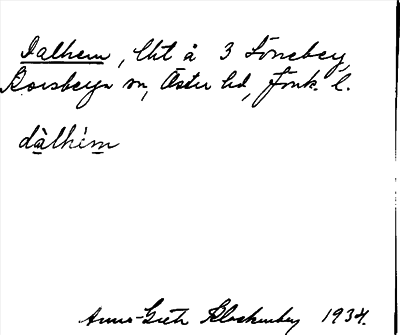 Dalhem, lht å 3 Löneberg,
Korsberga sn, Östra hd, Jönk. l.
dàlhèm
Anna-Greta Klockenberg 1934.